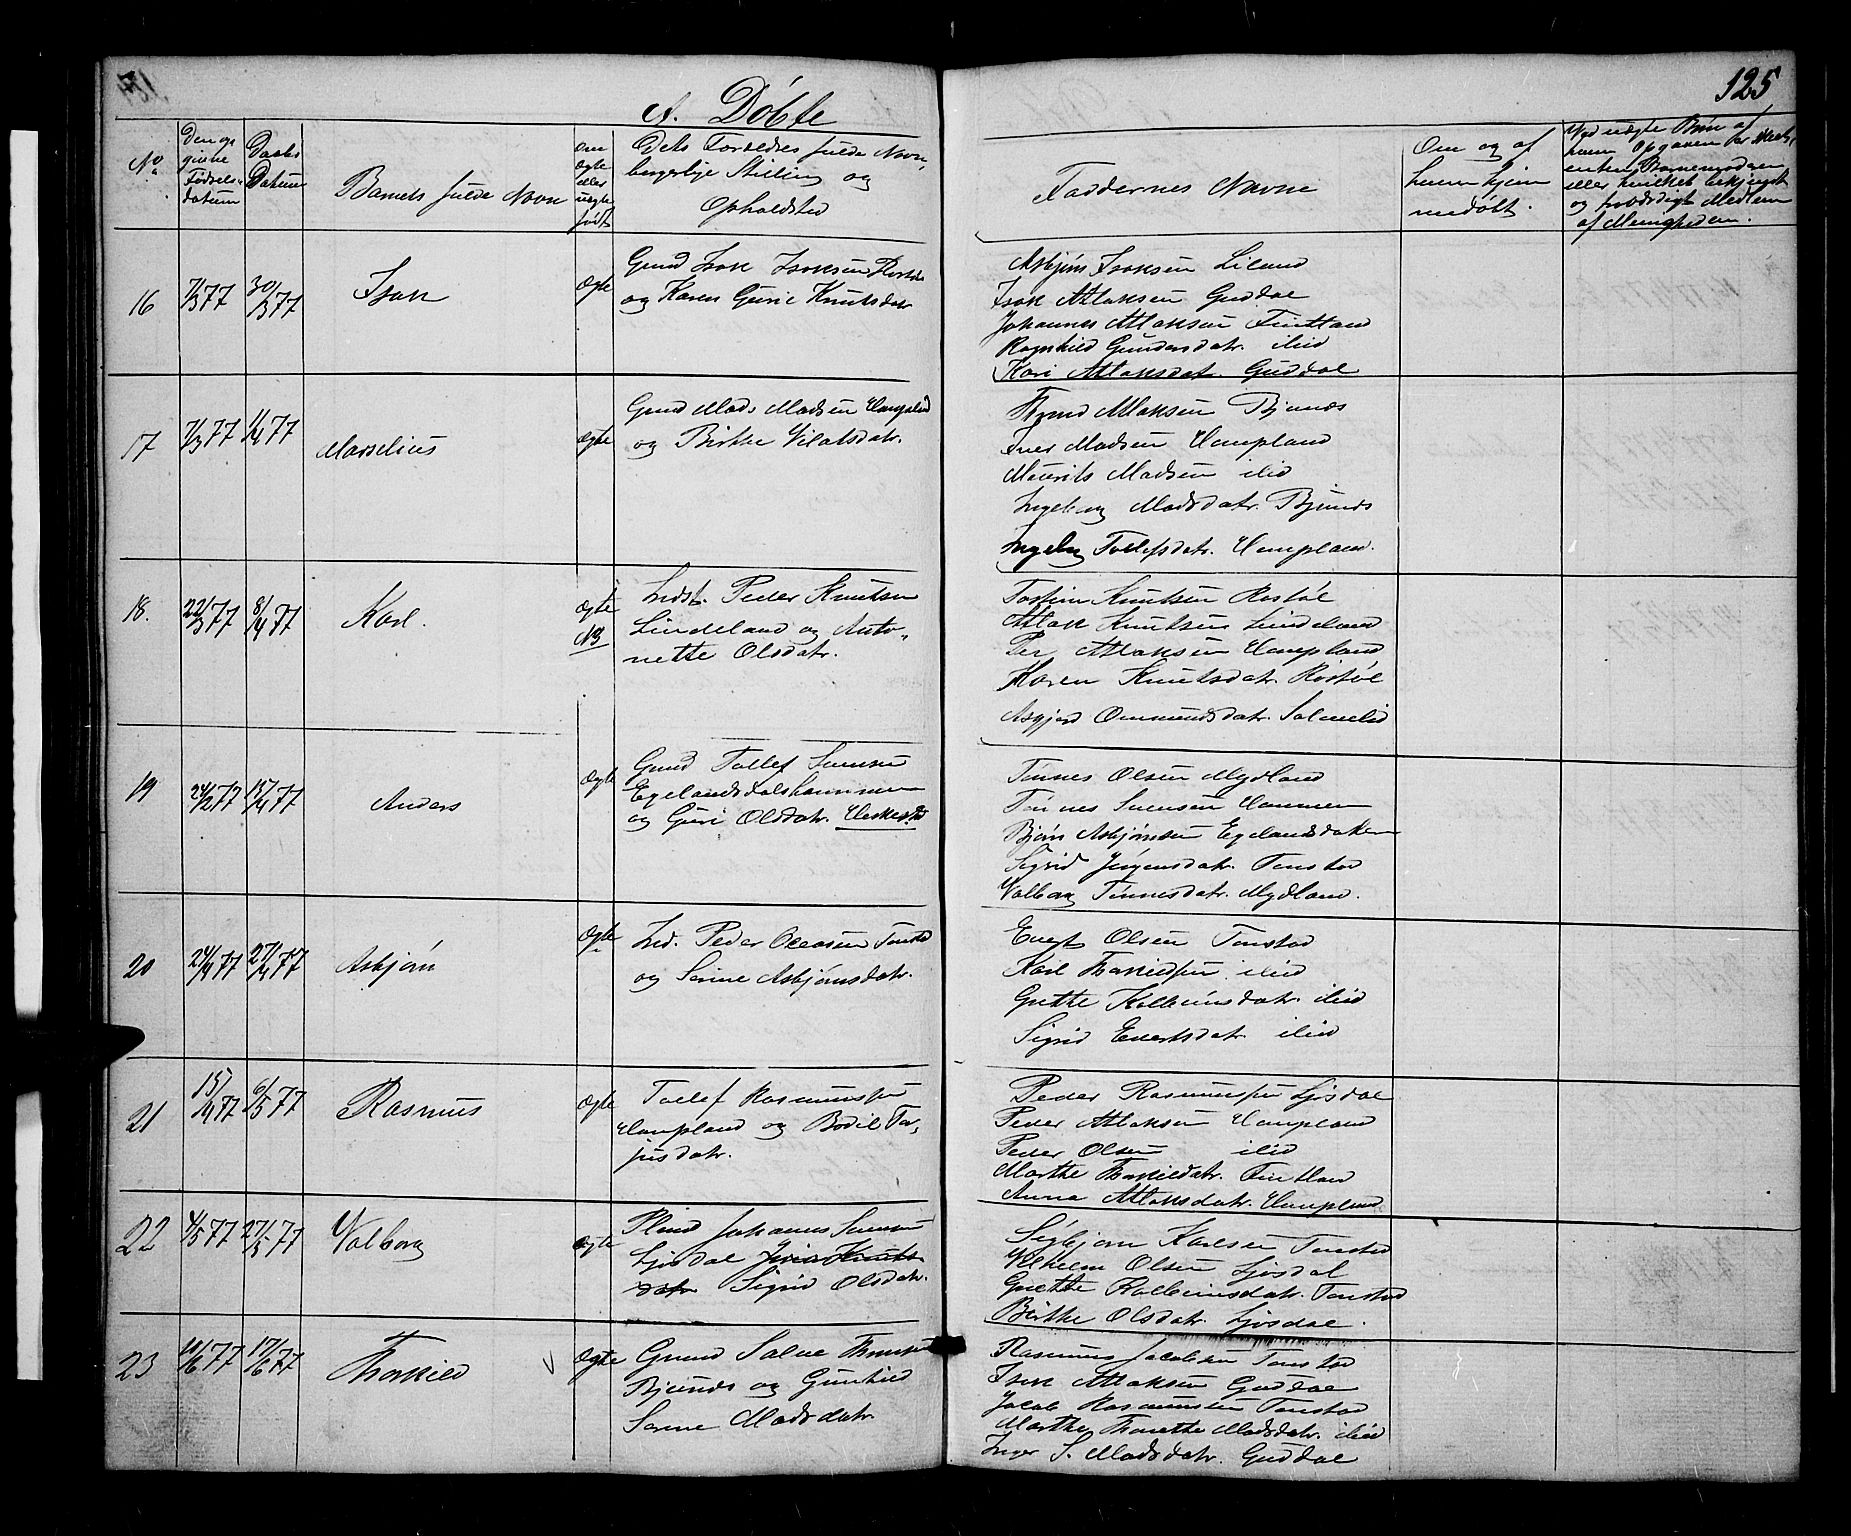 125
A. Döbte
No.
Den op
givne
Fødsels-
datum
Daabs
Datum
Barnets fulde Navn
Om
ægte
eller
uægte
født
Dets Forældres fulde Navn,
borgerlige Stilling og
Opholdsted
Faddernes Navne
Om og af
hvem hjem
medöbt.
Ved uægte Børn af
hvem Opgaven er
enten Barnemoderen
eller hvilket
og troværdigt Medlem
af Menigheden.
16 7/3 77 30/3 77 Isak Ægte
Gmd Isak Isaksen
og Karen Gurie Knutsdatr
Asbjørn Isaksen Liland
Isak Atlaksen Guddal
Johannes Atlaksen Fintland
Ragnhild Gundersdatr. ibid
Kari Atlaksdat. Guddal
17 7/3 77 1/4 77 Marselius Ægte
Gmd Mads Madsen Haugland
og Birthe
Atlaksen Bjunes
Iver Madsen Haugland
Mourits Madsen ibid
Ingeborg Madsdatr. Bjunes
Ingebg Tollefsdatr. Haugland.
18. 22/3 77 8/4 77 Karl. Ægte
NB
Indst. Peder Knutsen
Lindeland og Anto-
nette Olsdatr.
Tostein Knutsen Røstøl
Atlak Knutsen Lindeland
Per Atlaksen Haugland
Karen Knutsdatr Røstøl
Asgjerd Ommundsdatr. Salmelid
19 24/2 77 15/4 77 Anders Ægte
Gmd Tollef Svensen
Egelandsdalshammeren
og Guri Olsdatr. Heskestd
Tønnes Olsen Mydland
Tønnes Svensen Hammer
Bjørn Asbjørnsen Egelandsdalen
Sigrid Jørgensdatr. Tonstad
Valborg Tønnesdatr. Mydland.
20 24/4 77 27/4 77 Asbjørn Ægte
Ind. Peder Olausen Tonstd
og Serine Asbjørnsdatr.
Evert Olsen Tonstad
Karl Thorkildsen ibid
Grethe Kolbeinsdatr. ibid
Sigrid Evertsdatr. ibid
21 15/4 77 6/5 77 Rasmus Ægte
Tollef Rasmussen
Haugland og Bodil Tar-
jusdatr.
Peder Rasmussen Ljosdal
Peder Atlaksen Haugland
Peder Olsen ibid
Marthe Thorkildsdatr. Fintland
Anna Atlaksdatr. Haugland
22 4/5 77 27/5 77 Valborg Ægte
Plmd Johannes Svensen
Ljosdal Knuts
datr Sigrid Olsdatr.
Sigbjørn Karlsen Tonstad
Vilhelm Olsen Ljosdal
Grethe Kolbeinsdatr. Tonstad
Birthe Olsdatr. Ljosdal.
23 10/6 77 17/6 77 Thorkild Ægte
Gmd Salve
Bjunes og Gunhild
Serine Madsdatr
Rasmus Jacobsen Tonstad
Isak Atlaksen Guddal
Jakob Rasmussen Tonstad
Marthe Madsdatr. ibid
Inger S. Madsdatr. Guddal